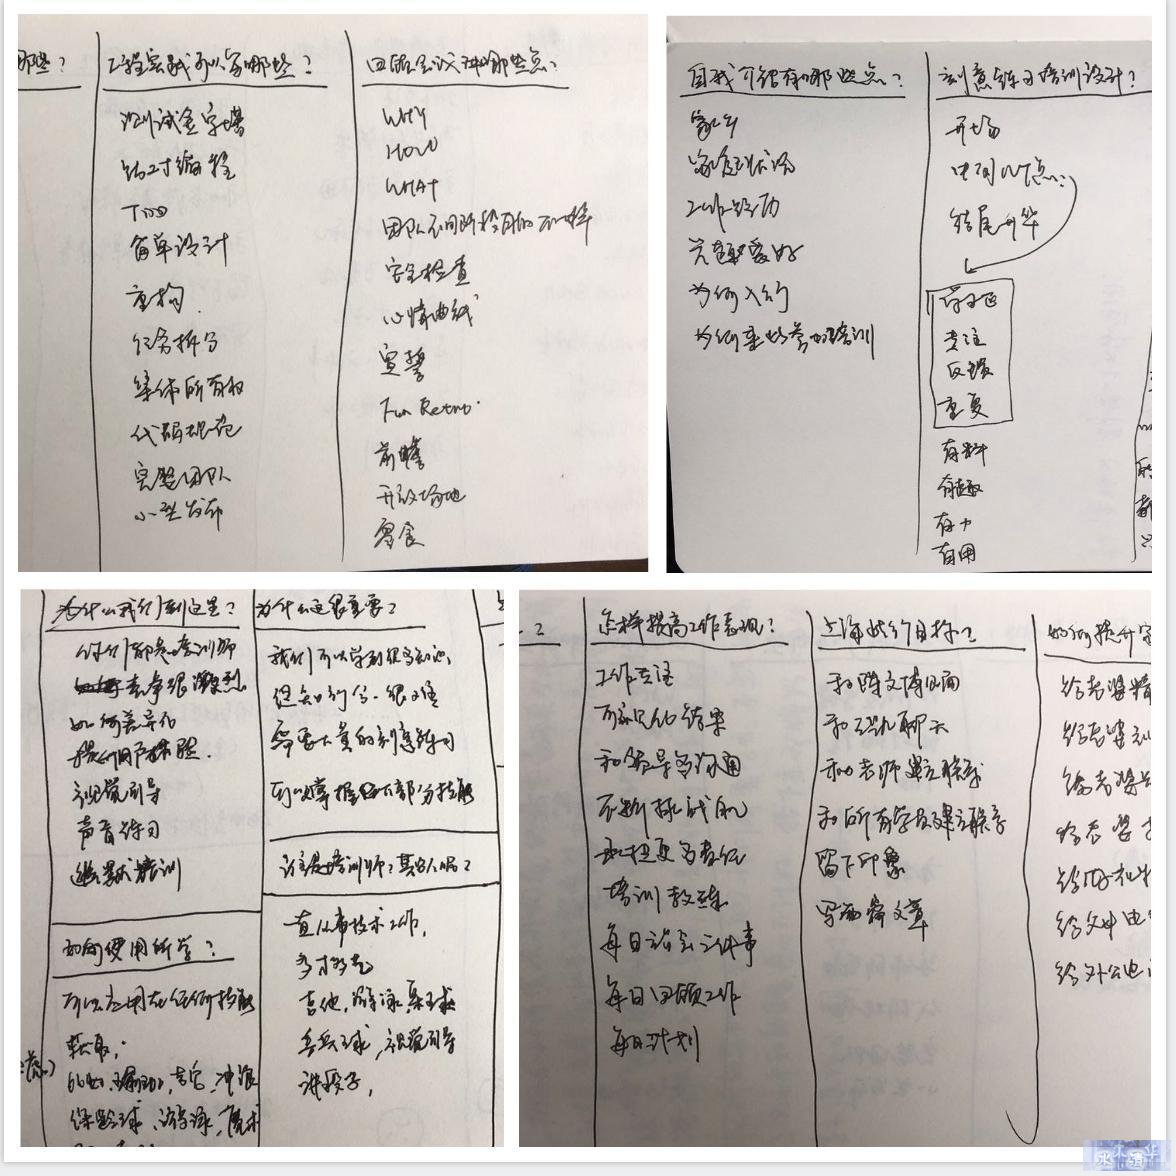 哪些？
工程实践可以写哪些？
测试金字塔
结对编程
TDD
简单设计
重构
任务拆分
集体所有权
代码规范
完整团队
小型发布
回顾会议讲哪些点？
WHY
HOW
WHAT
团队不同阶段目的不一样
安全检查
心情曲线
宣誓
Fun Retro
前瞻
开放场地
零食
自我介绍有哪些点？
家乡
家庭状况
工作经历
兴趣爱好
为何入行
为何来此参加培训
刻意练习培训设计？
开场
中间N点
结尾升华
学习区
专注
反馈
重复
有料
有趣
有用
为什么我们到这里？
你们都是培训师
竞争很激烈
如何差异化
提升用户体验
视觉引导
声音练习
幽默培训
如何使用所学？
可以应用在任何技能
获取，
比如，吉它，冲浪
保龄球，游泳，魔术
为什么这很重要？
我们可以学到很多知识，
但知行合一很难
需要大量的刻意练习
可以掌握绝大部分技能
该主题培训师？其它人吗？
一直从事技术工作，
多才多艺
吉他，游泳，桌球
乒乓球，视觉引导
讲段子，
？
怎样提高工作表现？
工作专注
可识见的结果
和领导多沟通
不断挑战自己
承担更多责任
培训教练
每日站会三件事
每日回顾工作
每日计划
上海此行目标？
和陈文博见面
和聊天
和老师建立联系
和所有学员建立联系
留下印象
写两篇文章
如何提升
给老婆
给老婆
给老婆
给老婆
给
给父母
给外公